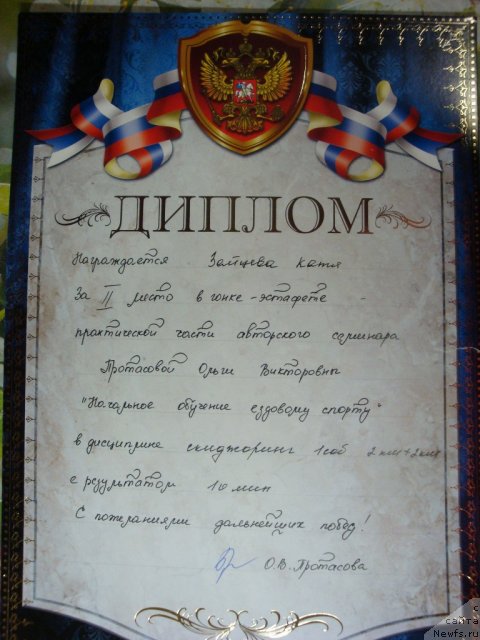 ДИПЛОМ
Награждается Зайцева Катя
За II место в гонке-эстафете
практической части авторского семинара
Протасовой Ольги Викторовны
"Начальное обучение ездовому спорту"
в дисциплине скиджоринг 1соб 2км+2км
с результатом 10 мин
С пожеланиями дальнейших побед!
О.В. Протасова
с
сайта
Newfs.ru